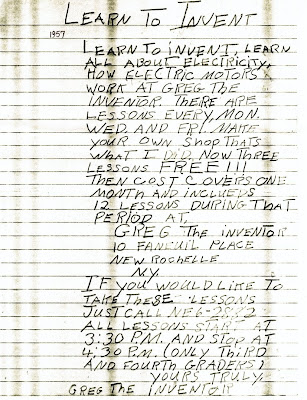 LEARN TO INVENT
1957
LEARN TO INVENT, LEARN
ALL ABOUT ELECTRICITY,
HOW ELECTRIC MOTORS
WORK AT GREG THE
INVENTOR. THERE ARE
LESSONS EVERY, MON.
WED. AND FRI. MAKE
YOUR OWN SHOP THATS
WHAT I DID. NOW THREE
LESSONS FREE!!!
THEN COST COVERS ONE
MONTH AND INCLUEDS
12 LESSONS DURING THAT
PERIOD AT,
GREG THE INVENTOR
10 FANEUIL PLACE
NEW ROCHELLE
N.Y.
IF YOU WOULD LIKE TO
TAKE THESE LESSONS
JUST CALL NE6-2872
ALL LESSONS START AT
3:30 P.M. AND STOP AT
4:30 P.M. (ONLY THIRD
AND FOURTH GRADERS)
YOURS TRULY,
GREG THE INVENTOR